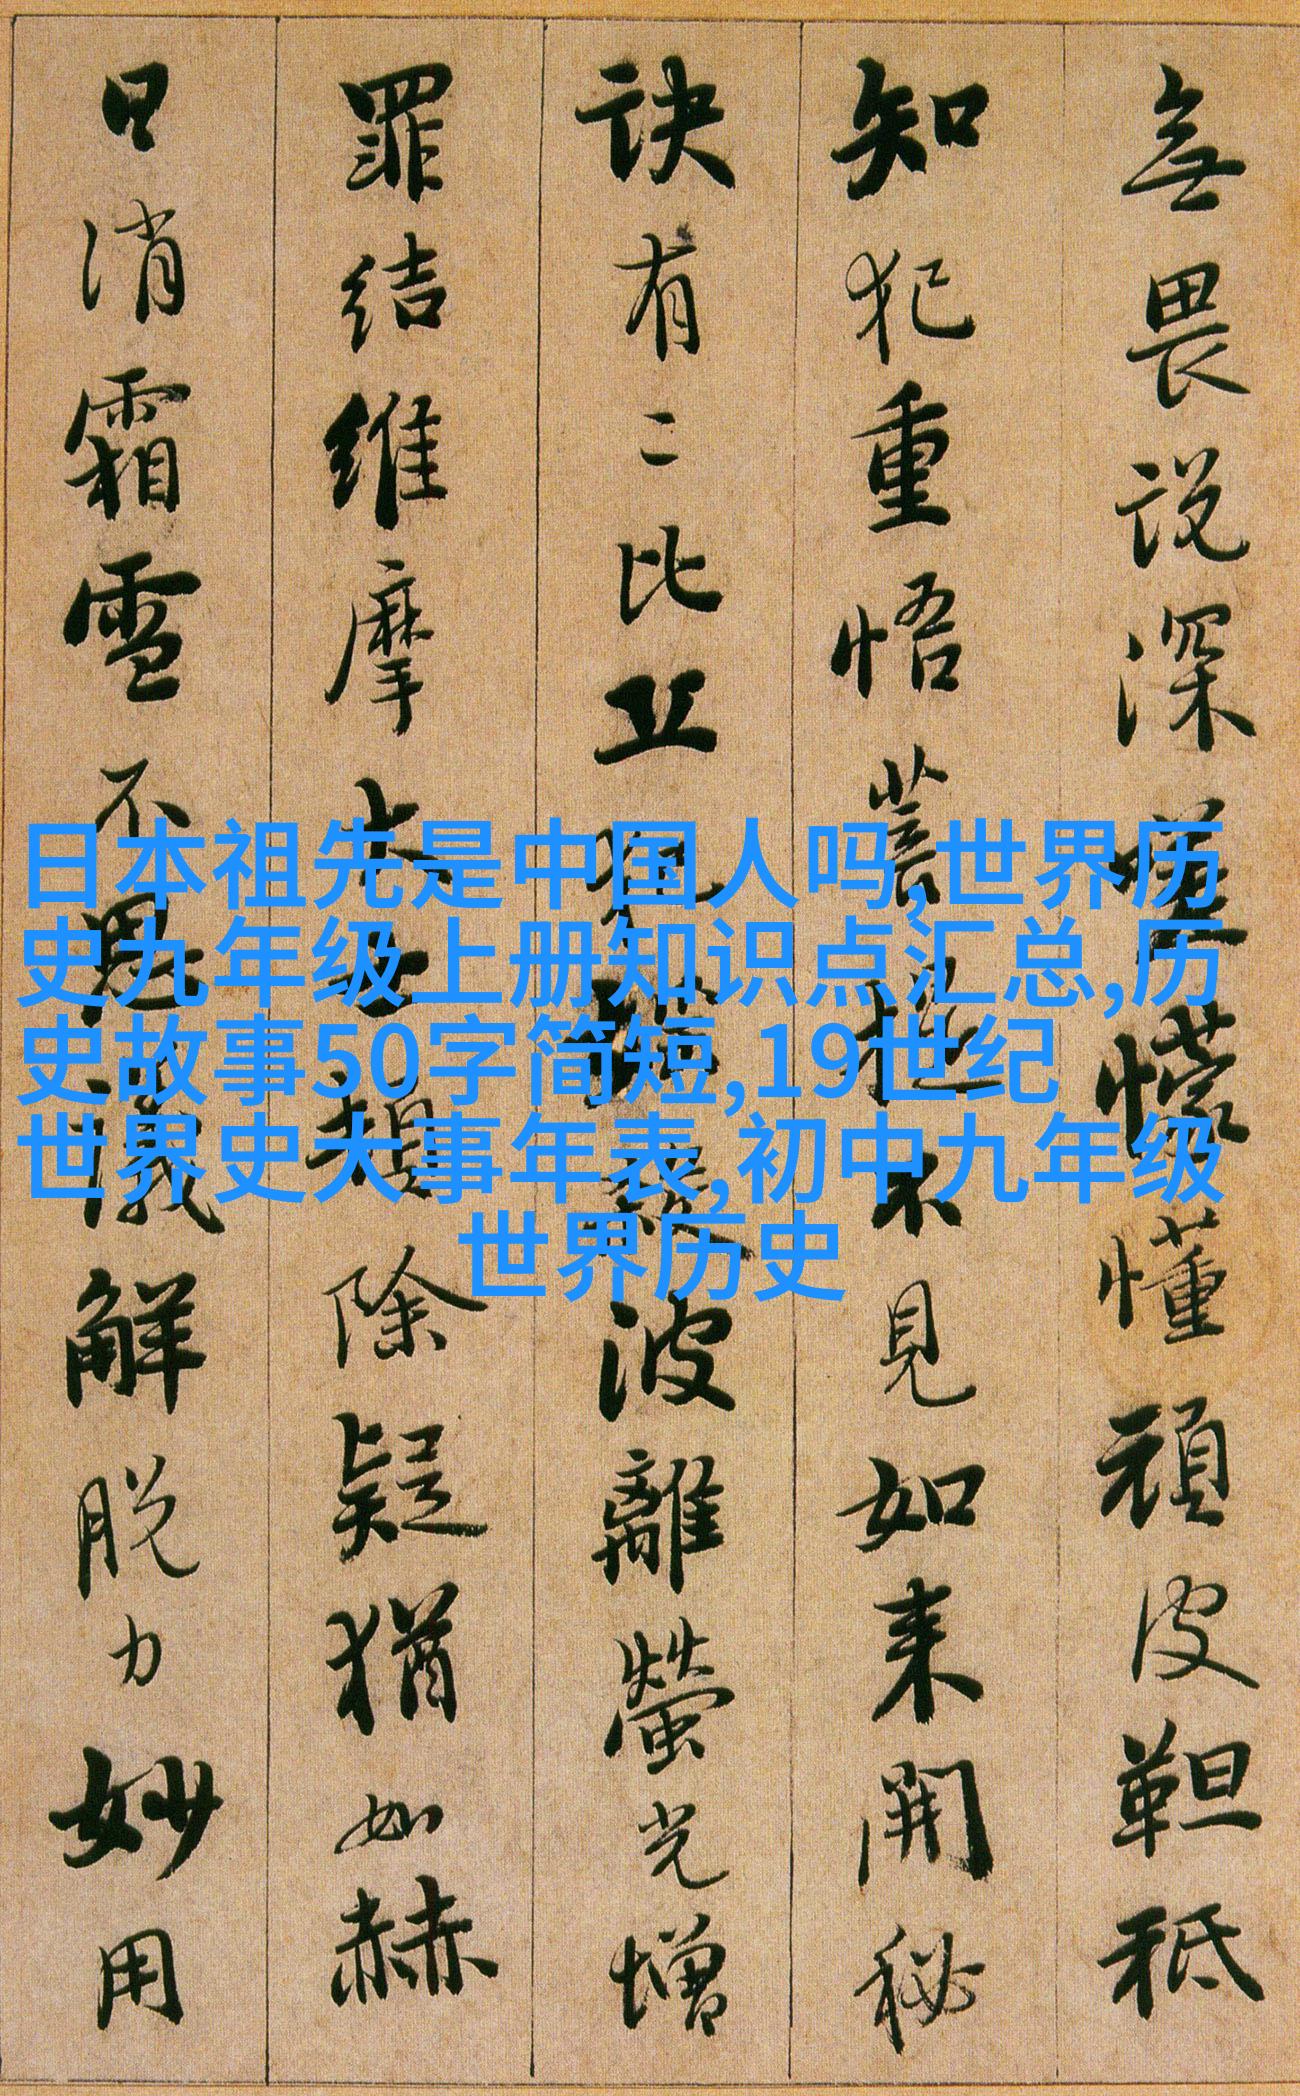 無畏説深嗟懞懂頑皮靼秖
知犯重悟菩提不見如来開秘
訣有二比丘犯婬殺波離螢光增
罪結維摩大士頓除疑猶如赫
日消霜雪不思議解脱力妙用
日本祖先是中国人吗,世界历
史九年级上册知识点汇总,历
史故事50字简短,19世纪
世界史大事年表,初中九年级
世界历史